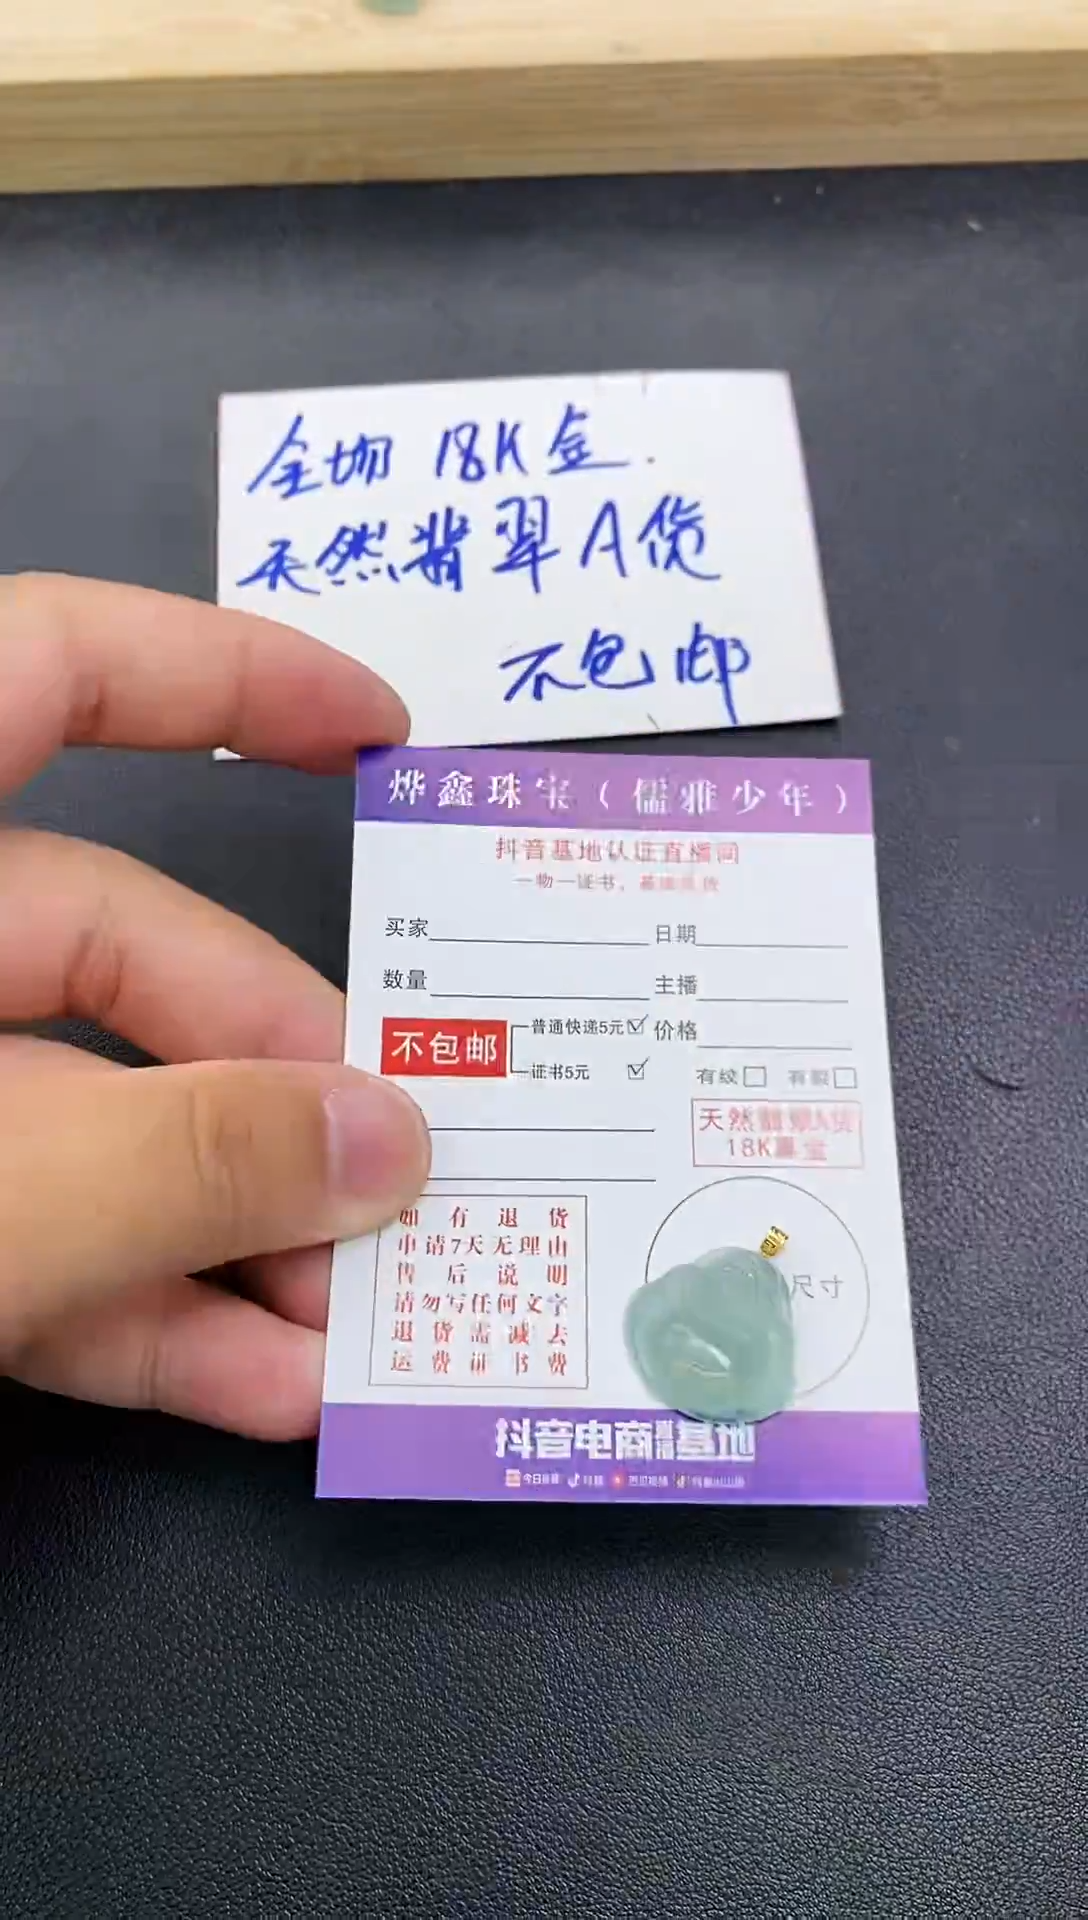 全场 18K金.
天然翡翠A货
不包邮
烨鑫珠宝（儒雅少年）
抖音基地认证直播间
一物一证书，基地
买家 日期
数量 主播
不包邮 普通快递5元☑ 价格
证书5元 ☑
有纹□ 有裂□
天然翡翠A货
18K真金
如有退货
申请7天无理由
售后说明
请勿写任何文字
退货需减去
运费证书费
尺寸
抖音电商直播基地
今日头条 抖音 西瓜视频 抖音火山版